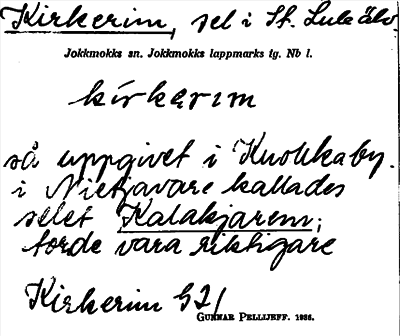 Kirkerim, sel i St. Lule älv.
Jokkmokks sn. Jokkmokks lappmarks tg. Nb l.
kírkęrım
så uppgivet i Knokkaby.
i Nietjavare kallades
selet Kalakjarem;
torde vara riktigare
Kirkerim G21
GUNNAR PELLIJEFF. 1936.